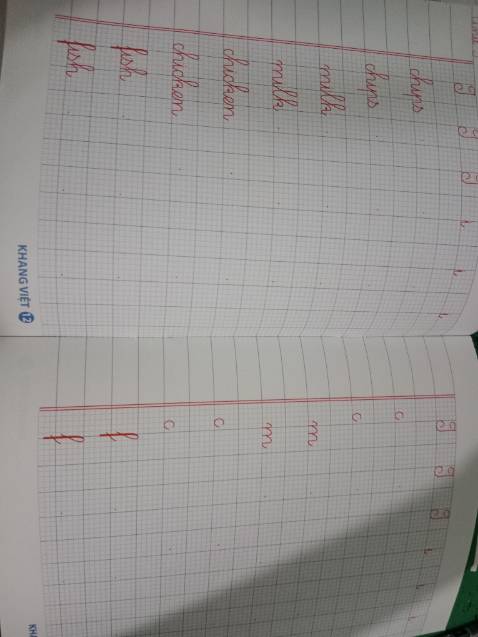 chips
chips
milk
milk
chicken
chicken
fish
fish
KHANG VIỆT 12
c
c
m
m
c
c
f
f